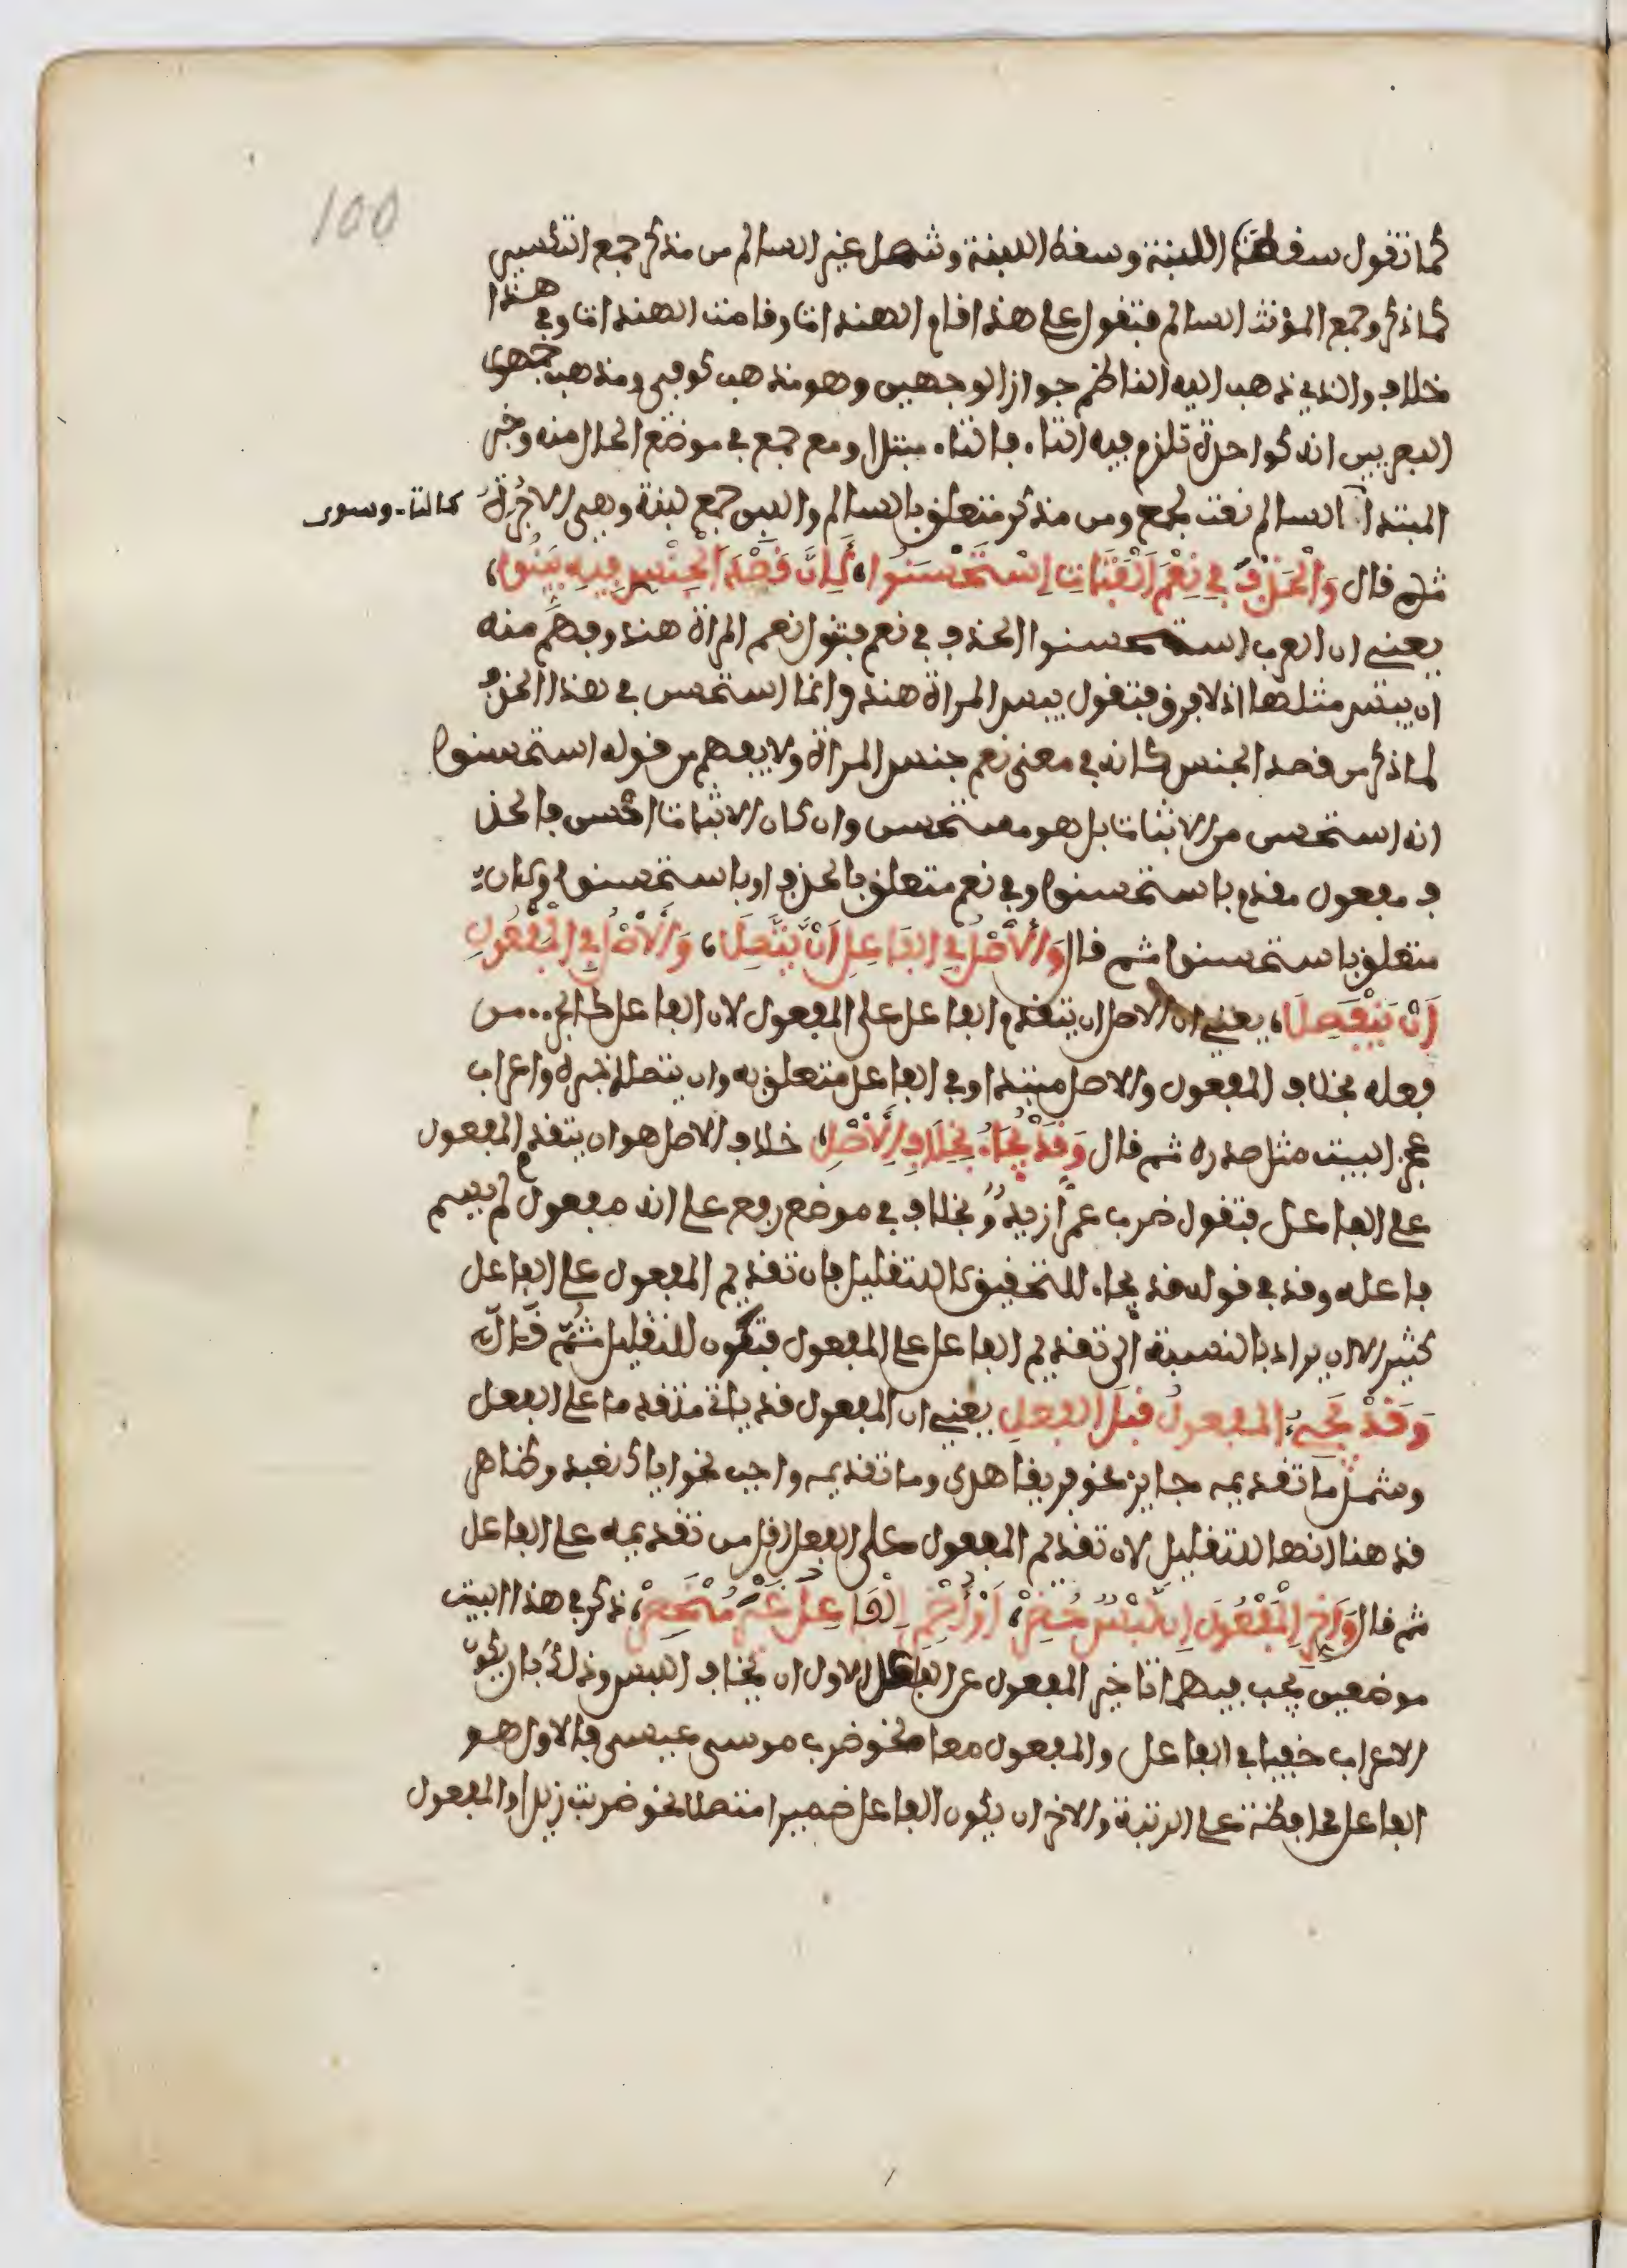 100
كما تقول سقطت اللبنة وسقط اللبنة وشمل غير السالم من مذكر جمع التكسير
كما ذكر وجمع المؤنث السالم فتقول على هذا قام الهندات وقامت الهندات وفي هذا
خلاف والذي ذهب اليه الناظم جواز الوجهين وهو مذهب كوفي ومذهب جمهور
البصريين انه كواحدة تلزم فيه التاء. فالتاء. مبتدا ومع جمع في موضع الحال منه وخبر
المبتدا السالم نعت لجمع ومن مذكر متعلق بالسالم واللبن جمع لبنة وهي الاجرة كالتاء. وسور
ثم قال وَالْحَذْفُ فِي نِعْمَ الْفَتَاةُ اِسْتَحْسَنُوا، لِأَنَّ قَصْدَ الْجِنْسِ فِيهِ بَيِّنُ،
يعني ان العرب استحسنوا الحذف في نعم فتقول نعم المراة هند وفهم منه
ان بيس مثلها اذ لا فرق فتقول بيس المراة هند وانما استحسن في هذا الحذف
لما ذكر من قصد الجنس كانه في معنى نعم جنس المراة ولا يفهم من قوله استحسنوا
انه استحسن من الاثبات بل هو مستحسن وان كان الاثبات احسن فالحذ
ف مفعول مقدم باستحسنوا وفي نعم متعلق بالحذف او باستحسنوا ولان
متعلق باستحسنوا ثم قال وَالْأَصْلُ فِي الْفَاعِلِ أَنْ يَتَّصِلَا، وَالْأَصْلُ فِي الْمَفْعُولِ
أَنْ يَنْفَصِلَا، يعني ان الاصل ان يتقدم الفاعل على المفعول لان الفاعل كالجز. من
فعله بخلاف المفعول والاصل مبتدا وفي الفاعل متعلق به وان يتصلا خبره واعراب
عجز البيت مثل صدره ثم قال وَقَدْ يُجَاءُ بِخِلَافِ الْأَصْلِ، خلاف الاصل هو ان يتقدم المفعول
على الفاعل فتقول ضرب عمرا زيد وبخلاف في موضع رفع على انه مفعول لم يسم
فاعله وقد في قوله قد يجا. للتحقيق لا للتقليل فان تقديم المفعول على الفاعل
كثير الا ان يراد بالنسبة الى تقديم الفاعل على المفعول فتكون للتقليل ثم قال
وَقَدْ يَجِيءُ الْمَفْعُولُ قَبْلَ الْفِعْلِ يعني ان المفعول قد ياتي متقدما على الفعل
وشمل ما تقديمه جايز نحو فريقا هدى وما تقديمه واجب نحو اياك نعبد وظاهر
قد هنا انها للتقليل لان تقديم المفعول على الفعل اقل من تقديمه على الفاعل
ثم قال وَأَخِّرِ الْمَفْعُولَ إِنْ لَبْسٌ حُذِرْ، أَوْ أُضْمِرَ الْفَاعِلُ غَيْرَ مُنْحَصِرْ، ذكر في هذا البيت
موضعين يجب فيهما تاخير المفعول عن الفاعل الاول ان يخاف اللبس وذلك بان يكون
الاعراب خفيا في الفاعل والمفعول معا نحو ضرب موسى عيسى فالاول هو
الفاعل محافظة على الرتبة والاخر ان يكون الفاعل ضميرا متصلا نحو ضربت زيدا والمفعول